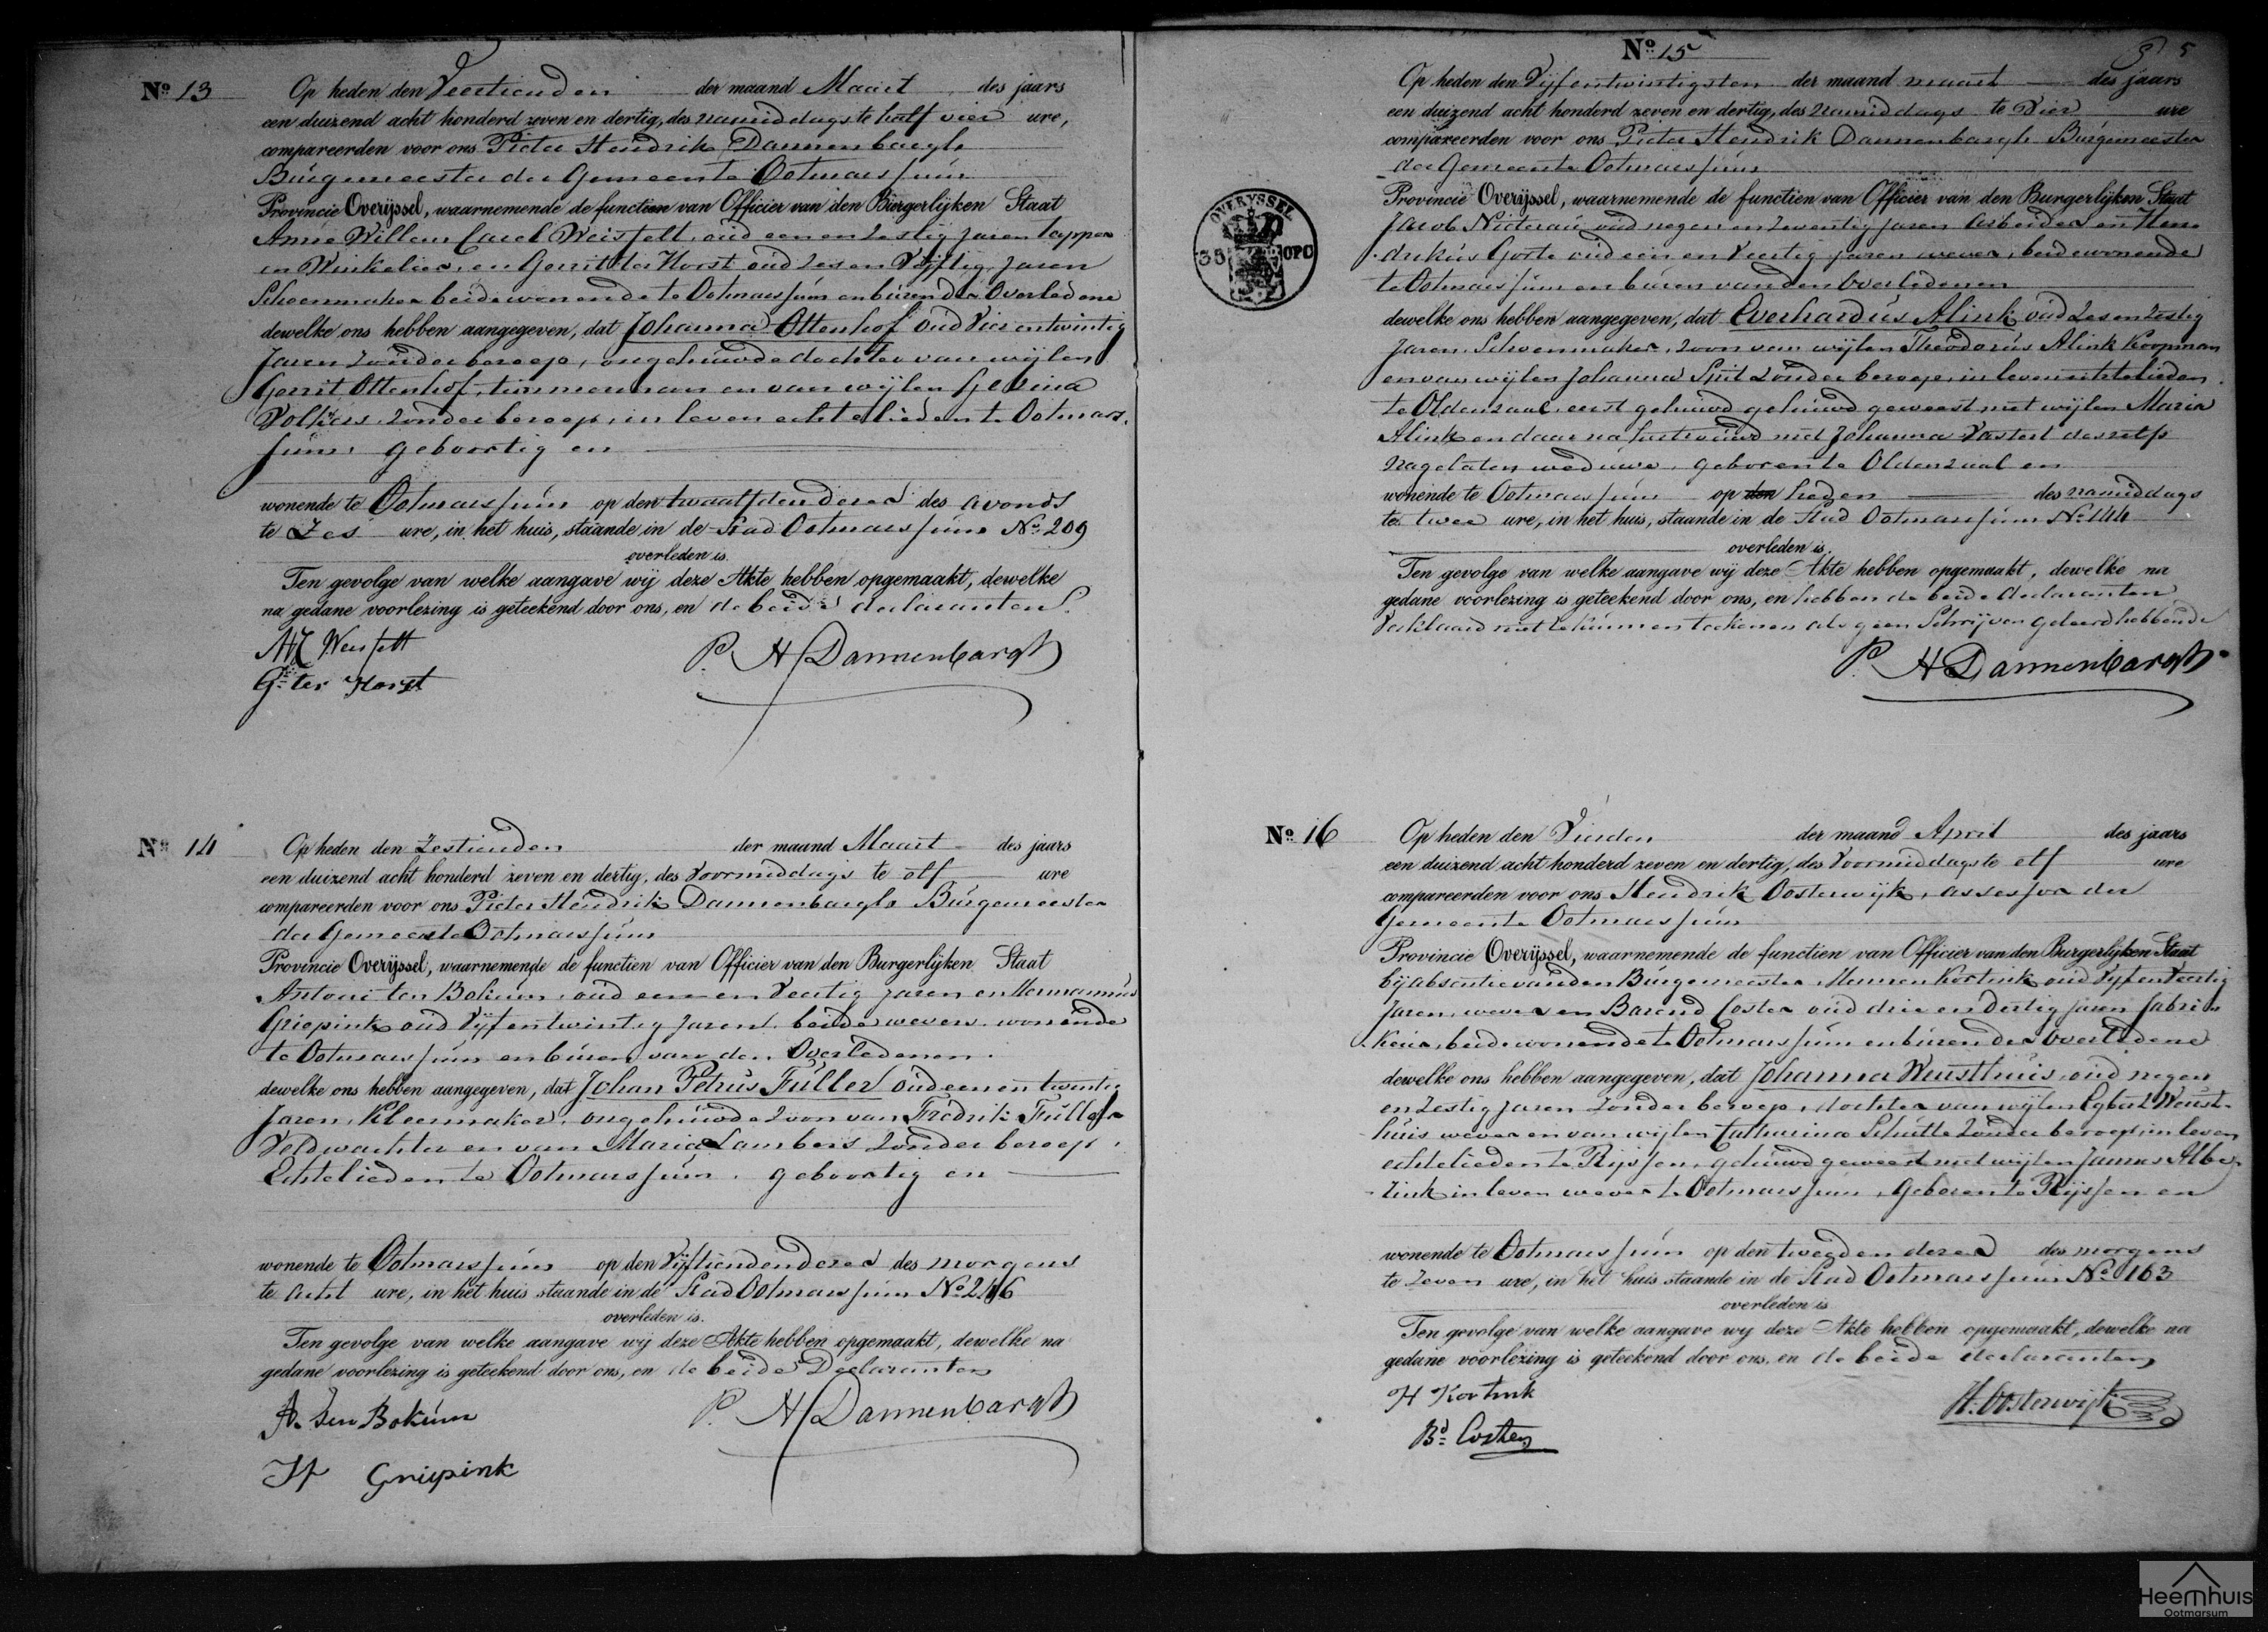 Nº 13 Op heden den Veertienden der maand Maart des jaars
een duizend acht honderd zeven en dertig, des namiddags te half vier ure,
compareerden voor ons Pieter Hendrik Dannenbargh
Burgemeester der Gemeente Ootmarssum
Provincie Overijssel, waarnemende de functien van Officier van den Burgerlijken Staat
Anne Willem Carel Weisfelt, oud een en zestig Jaren tapper
en Winkelier, en Gerrit ter Horst oud Zes en Vijftig Jaren
Schoenmaker beide wonende te Ootmarssum en buren der Overledene
dewelke ons hebben aangegeven, dat Johanna Ottenhof oud Vier en twintig
Jaren zonder beroep, ongehuwde dochter van wijlen
Gerrit Ottenhof, timmerman en van wijlen Gezina
Volkers zonder beroep, in leven echtelieden te Ootmars-
sum, geboortig en
wonende te Ootmarssum op den twaalfden dezer des avonds
te Zes ure, in het huis, staande in de Stad Ootmarssum Nº 209
overleden is.
Ten gevolge van welke aangave wij deze Akte hebben opgemaakt, dewelke
na gedane voorlezing is geteekend door ons, en de beide declaranten.
Weisfelt P. H Dannenbargh
G. ter Horst
Nº 14 Op heden den Zestienden der maand Maart des jaars
een duizend acht honderd zeven en dertig, des Voormiddags te elf ure
compareerden voor ons Pieter Hendrik Dannenbargh Burgemeester
der Gemeente Ootmarssum
Provincie Overijssel, waarnemende de functien van Officier van den Burgerlijken Staat
Antoni ten Bokum, oud een en Veertig jaren en Hermannus
Griepink oud Vijf en twintig Jaren, beide wevers wonende
te Ootmarssum en buren van den Overledenen.
dewelke ons hebben aangegeven, dat Johan Petrus Fuller oud een en twintig
Jaren, Kleermaker, ongehuwde zoon van Fredrik Fuller
Veldwachter en van Maria Lambers zonder beroep,
Echtelieden te Ootmarssum, geboortig en
wonende te Ootmarssum op den Vijftienden dezer des morgens
te acht ure, in het huis staande in de Stad Ootmarssum Nº 246
overleden is.
Ten gevolge van welke aangave wij deze Akte hebben opgemaakt, dewelke na
gedane voorlezing is geteekend door ons, en de beide Declaranten
A. ten Bokum P. H Dannenbargh
H Griepink
Nº 15 5
Op heden den Vijfentwintigsten der maand maart des jaars
een duizend acht honderd zeven en dertig, des namiddags te Vier ure
compareerden voor ons Pieter Hendrik Dannenbargh Burgemeester
der Gemeente Ootmarssum
Provincie Overijssel, waarnemende de functien van Officier van den Burgerlijken Staat
OVERYSSEL
35 OPC
Jacob Nieterau oud negen en zeventig jaren Arbeider en Hen-
drikus Goste oud een en Veertig jaren wever, beide wonende
te Ootmarssum en buren van den Overledenen
dewelke ons hebben aangegeven, dat Everhardus Alink, oud Zes en zestig
Jaren, Schoenmaker, zoon van wijlen Theodorus Alink Koopman
en van wijlen Johanna Spit zonder beroep, in leven echtelieden
te Oldenzaal, eerst gehuwd gehuwd geweest met wijlen Maria
Alink en daarna hertrouwd met Johanna Vastert deszelfs
nagelaten weduwe, geboren te Oldenzaal en
wonende te Ootmarssum op den heden des namiddags
te twee ure, in het huis, staande in de Stad Ootmarssum Nº 144
overleden is.
Ten gevolge van welke aangave wij deze Akte hebben opgemaakt, dewelke na
gedane voorlezing is geteekend door ons, en hebben de beide declaranten
Verklaard niet te kunnen teekenen als geen Schrijven geleerd hebbende
P. H Dannenbargh
Nº 16 Op heden den Vierden der maand April des jaars
een duizend acht honderd zeven en dertig, des Voormiddags te elf ure
compareerden voor ons Hendrik Oosterwijk, assessor der
Gemeente Ootmarssum
Provincie Overijssel, waarnemende de functien van Officier van den Burgerlijken Staat
bij absentie van den Burgemeester, Kortink oud Vijf en Veertig
Jaren, wever en Barend Coster oud drie en dertig jaren fabri-
keur, beide wonende te Ootmarssum en buren der Overledene
dewelke ons hebben aangegeven, dat Johanna Weusthuis, oud negen
en zestig jaren zonder beroep, dochter van wijlen Egbert Weust-
huis wever en van wijlen Catharina Schutte zonder beroep, in leven
echtelieden te Rijssen, gehuwd geweest met wijlen Jannes Albe-
rink in leven wever te Ootmarssum, geboren te Rijssen en
wonende te Ootmarssum op den tweeden dezer des morgens
te zeven ure, in het huis staande in de Stad Ootmarssum Nº 163
overleden is
Ten gevolge van welke aangave wij deze Akte hebben opgemaakt, dewelke na
gedane voorlezing is geteekend door ons, en de beide declaranten
H Kortink H. Oosterwijk
Bd. Coster
Heemhuis
Ootmarsum